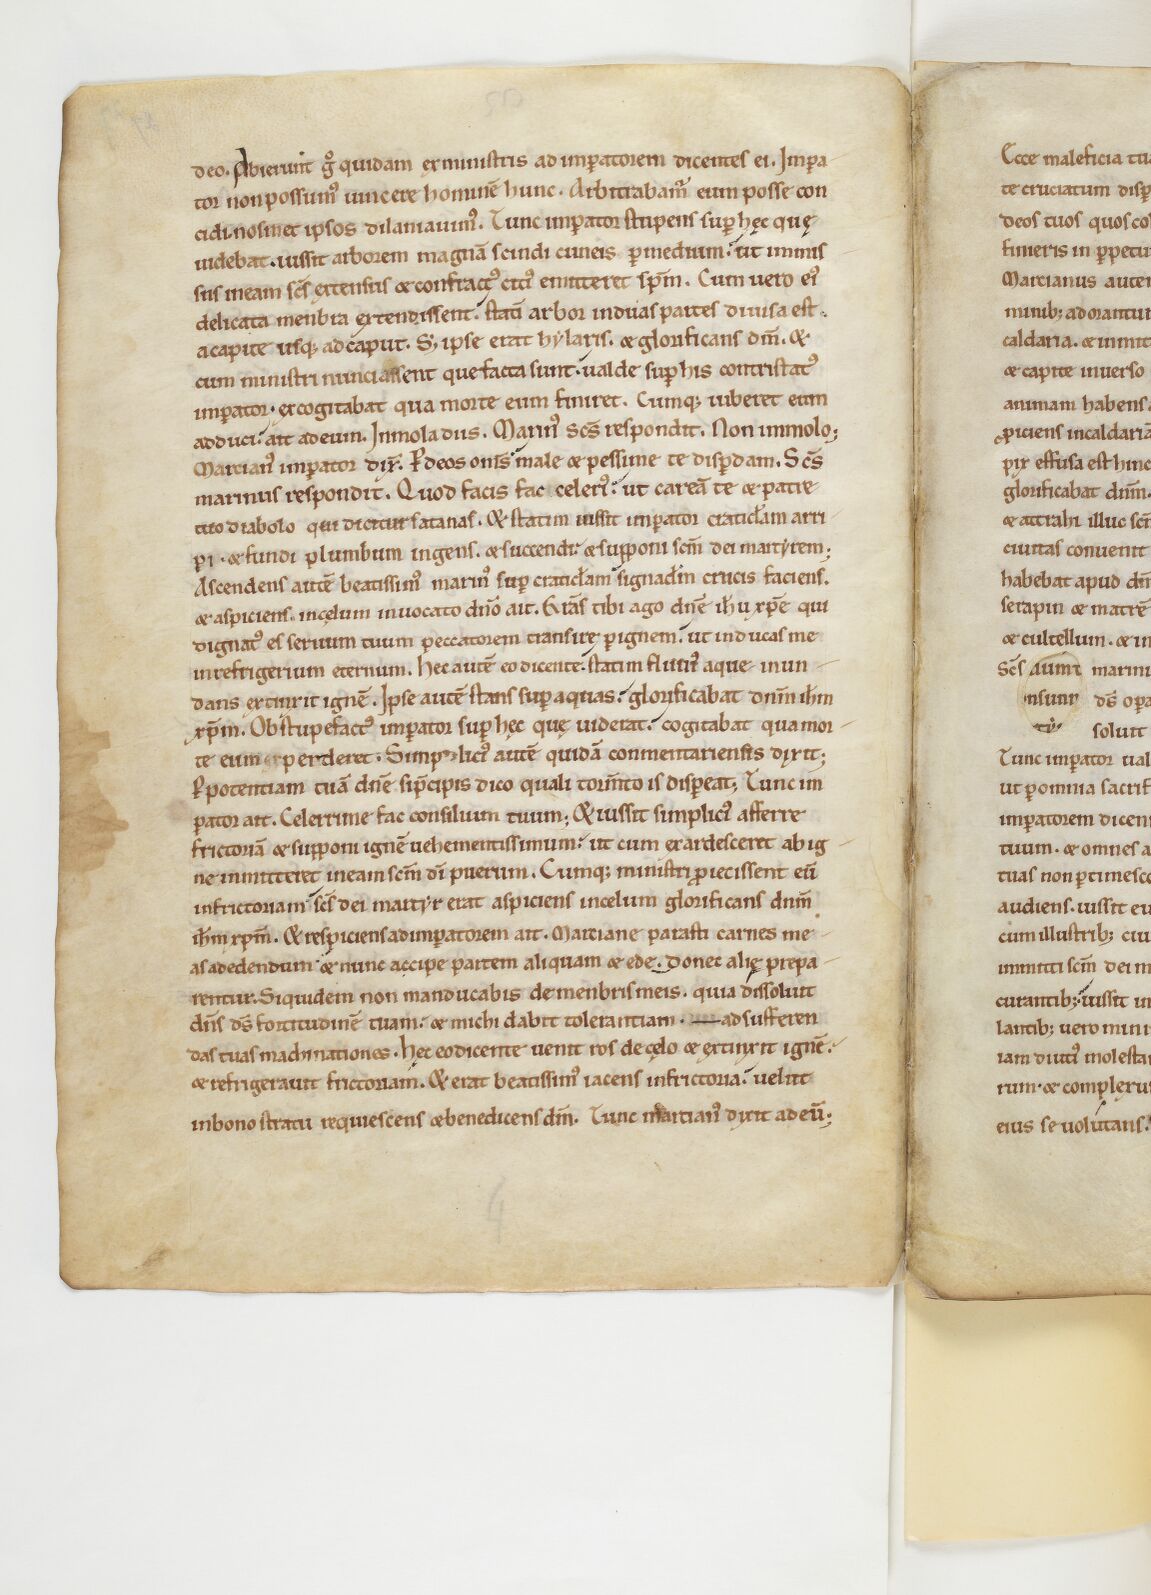 deo. Abierunt gͦ quidam exministris ad imꝑatorem dicentes ei. Imꝑa
tor non possumꝰ uincere hominē hunc. Arbitrabam̄ eum posse con
cidi. nosmet ipsos dilaniauimꝰ. Tunc imꝑator stupens suꝑ hęc quę
uidebat. iussit arborem magnā scindi cuneis ꝑ medium. ut inmis
sus in eam scs̄ extensus & confractꝰ citiꝰ emitteret spm̄. Cum uero eiꝰ
delicata menbra extendissent. statī arbor in duas partes diuisa est.
a capite usq; ad caput. S; ipse erat hylaris. & glorificans dm̄. &
cum ministri nunciassent que facta sunt. ualde suꝑ his contristatꝰ
imꝑator. excogitabat qua morte eum finiret. Cumq; iuberet eum
adduci. ait ad eum. Inmola diis. Marinꝰ scs̄ respondit. Non immolo;
Marcianꝰ imꝑator dix̄. P deos om̄s male & pessime te disꝑdam. Scs̄
marinus respondit. Quod facis fac celeriꝰ. ut careā te & patre
tuo diabolo qui dicitur satanas. & statim iussit imꝑator craticłam arri
pi. & fundi plumbum ingens. & succendi. & supponi scm̄ dei martyrem;
Ascendens autē beatissimꝰ marinꝰ suꝑ craticłam signac̄łm crucis faciens.
& aspiciens in cęlum inuocato dn̄o ait. Gr̄as tibi ago dn̄e ih̄u xp̄e qui
dignatꝰ es seruum tuum peccatorem transire ꝑ ignem. ut inducas me
in refrigerium eternum. hec autē eo dicente. statim fluuiꝰ aque inun
dans extinxit ignē. Ipse autē stans supra aquas. glorificabat dn̄m ih̄m
xp̄m. Obstupefactꝰ imꝑator suꝑ hęc quę uiderat. cogitabat qua mor
te eum perderet. Simpliciꝰ autē quidā conmentariensis dixit;
P potentiam tuā dn̄e si p̄cipis dico quali torm̄to is dispeat; Tunc im
ꝑator ait. Celerrime fac consilium tuum; & iussit simpliciꝰ afferre
frictoriā & supponi ignē uehementissimum. ut cum exardesceret ab ig
ne inmitteret in eam scm̄ dī puerum. Cumq; ministri ꝓiecissent eū
in frictoriam scs̄ dei martyr erat aspiciens in cęlum glorificans dnm̄
ih̄m xp̄m. & respiciens ad imꝑatorem ait. Marciane parasti carnes me
as ad edendum & nunc accipe partem aliquam & ede. donec alię prepa
rentur. Siquidem non manducabis de menbris meis. quia dissoluit
dn̄s ds̄ fortitudinē tuam. & michi dabit tolerantiam. ad sufferen
das tuas machinationes. hęc eo dicente uenit ros de cęlo & extinxit ignē.
& refrigerauit frictoriam. & erat beatissimꝰ iacens in frictoria. uelut
in bono stratu requiescens & benedicens dm̄. Tunc martianꝰ dixit ad eū;
Ecce maleficia tua
te cruciatum disꝑ
deos tuos quos co
finieris in ꝑpetu
Marcianus autem
minib; adorantur
caldaria. & inmit
& capite inuerso
animam habens
ꝑpiciens in caldariā
pix effusa est hinc
glorificabat dnm̄.
& attrahi illuc scm̄
ciuitas conuenit
habebat apud dn̄
serapin & matrē
& cultellum. & in
Scs̄ autem marinu
ds̄ opa
soluit
Tunc imꝑator ual
ut ꝑ omnia sacrif
imꝑatorem dicen
tuum. & omnes a
tuas non ꝑtimesco
audiens. iussit eu
cum illustrib; ciu
inmitti scm̄ dei m
curantib; iussit in
lantib; uero mini
iam diutiꝰ molesta
rum & complexu
eius se uolutans.